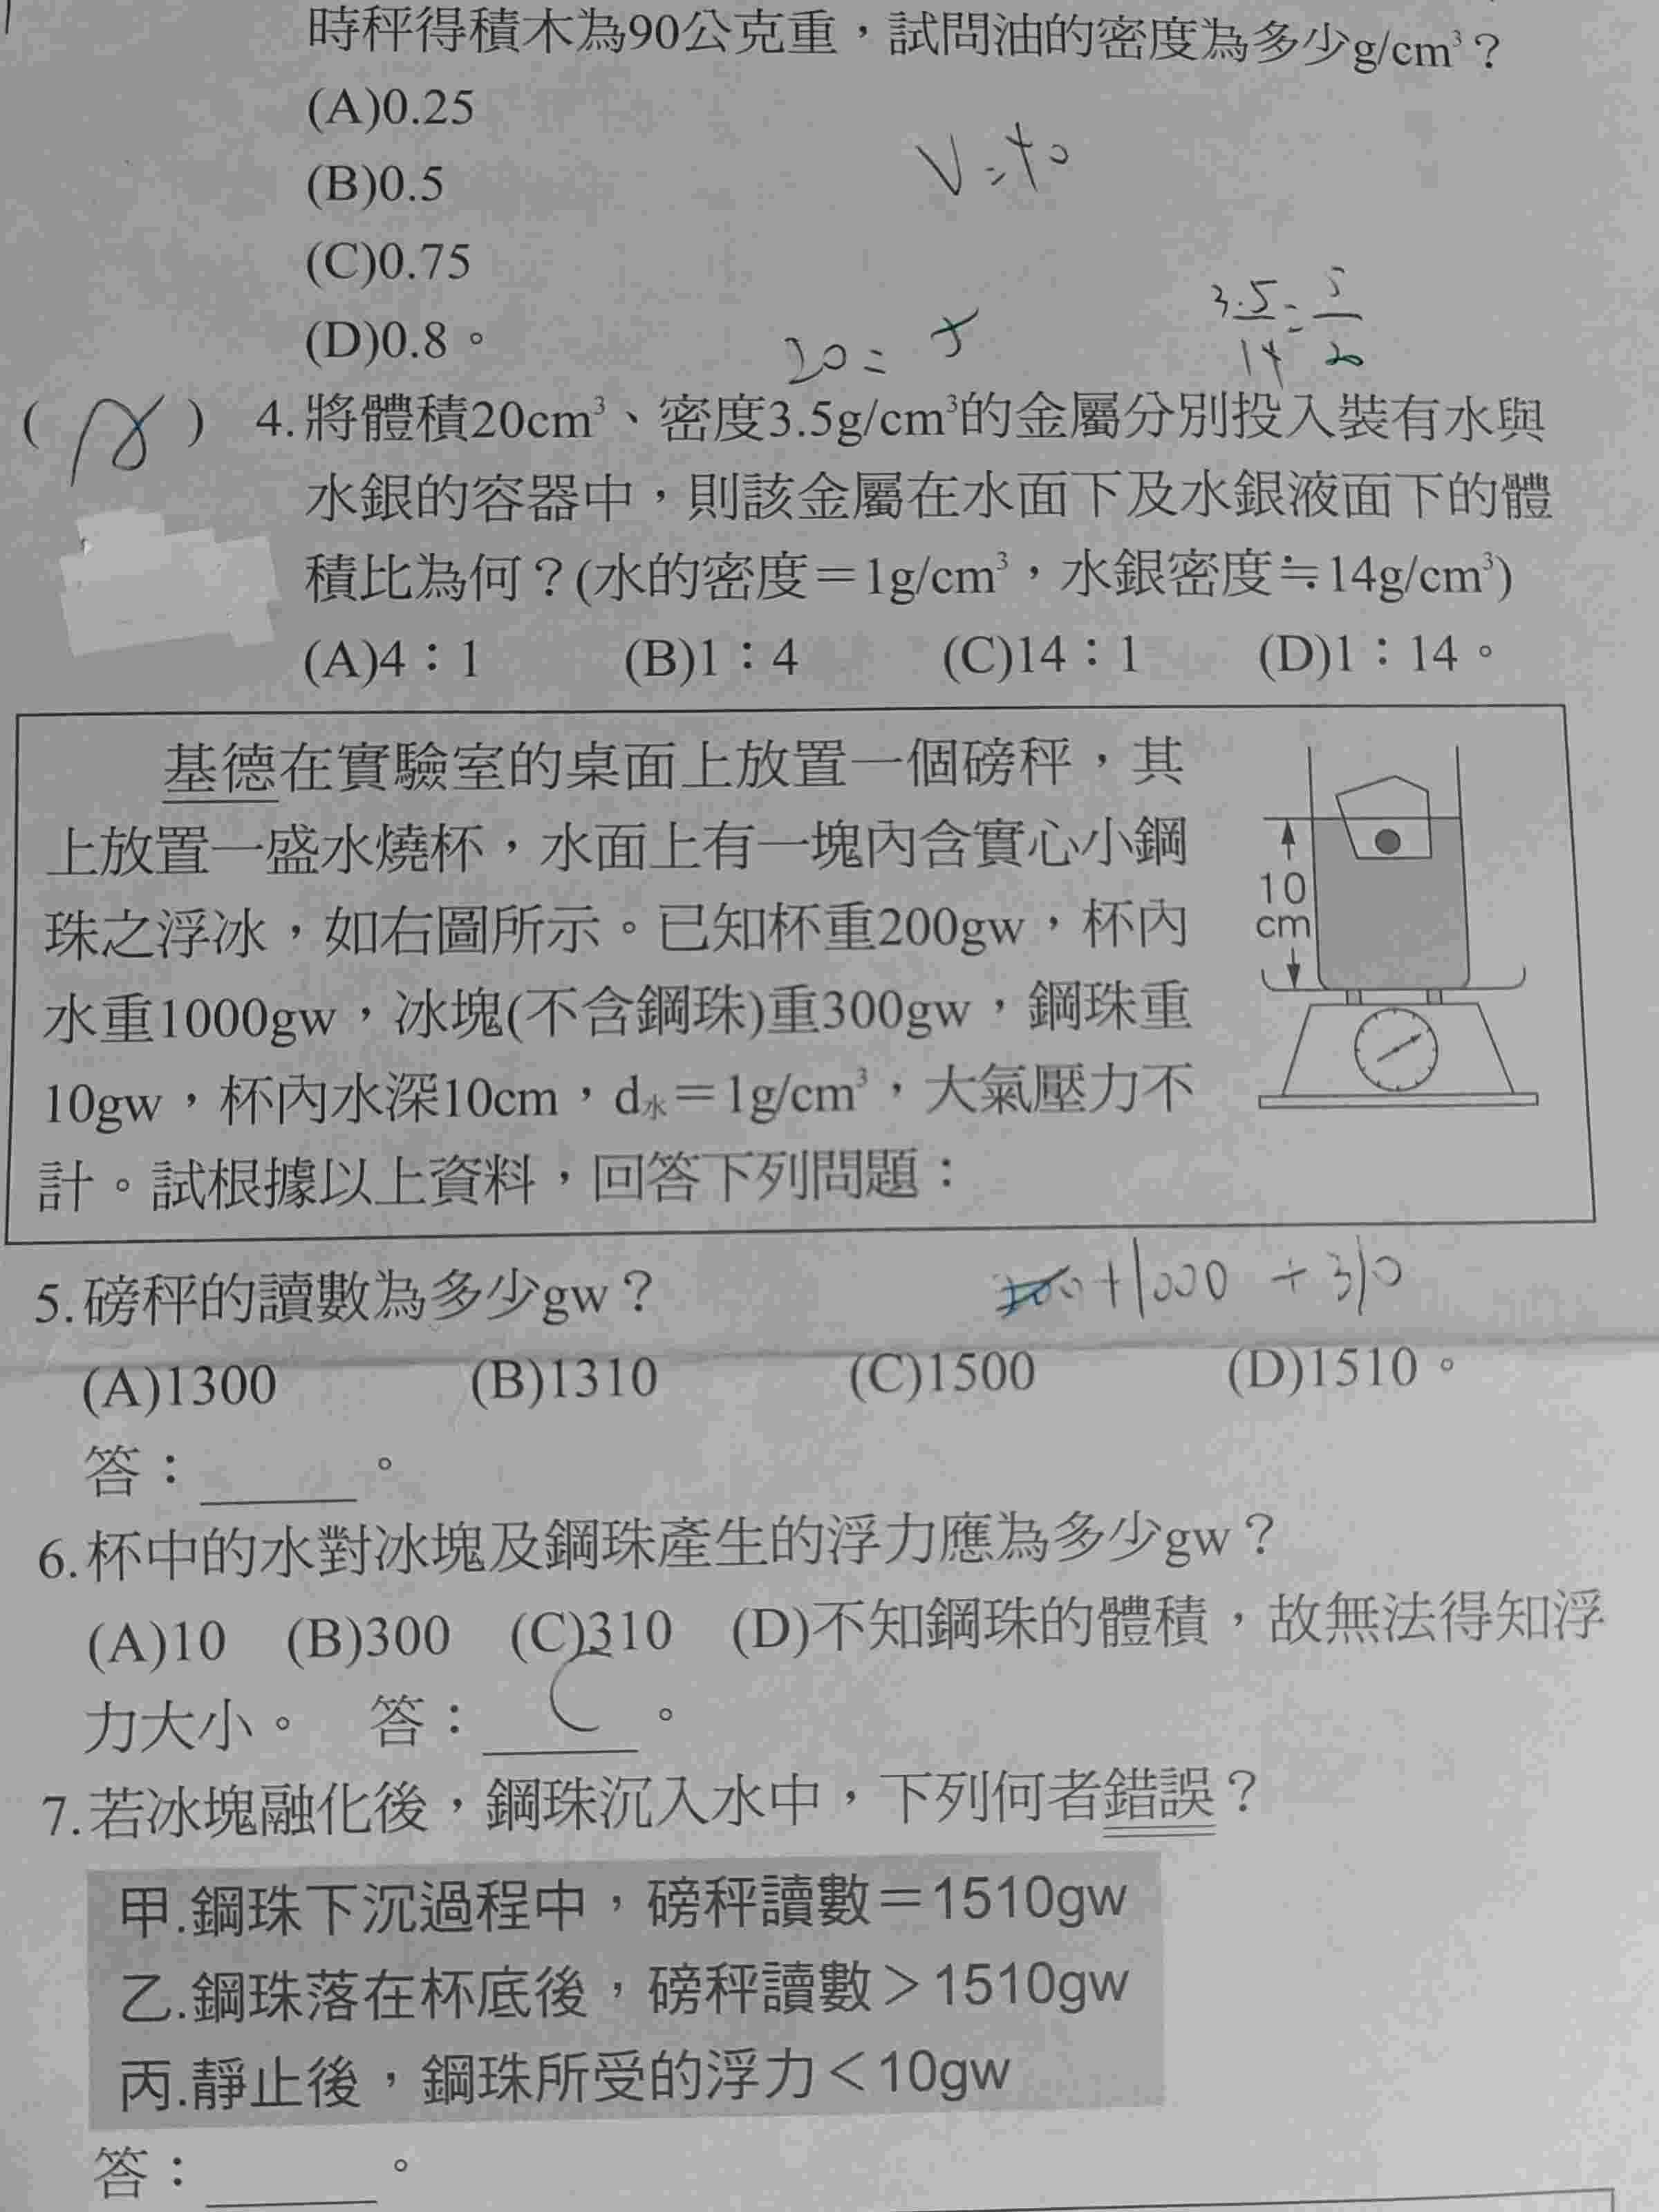 時秤得積木為90公克重，試問油的密度為多少g/cm³？
(A)0.25
V=40
(B)0.5
(C)0.75
3.5/14=5/20
(D)0.8。
20=
( ) 4.將體積20cm³、密度3.5g/cm³的金屬分別投入裝有水與
水銀的容器中，則該金屬在水面下及水銀液面下的體
積比為何？(水的密度＝1g/cm³，水銀密度≒14g/cm³)
(A)4：1 (B)1：4 (C)14：1 (D)1：14。
基德在實驗室的桌面上放置一個磅秤，其
上放置一盛水燒杯，水面上有一塊內含實心小鋼
珠之浮冰，如右圖所示。已知杯重200gw，杯內
水重1000gw，冰塊(不含鋼珠)重300gw，鋼珠重
10gw，杯內水深10cm，d水＝1g/cm³，大氣壓力不
計。試根據以上資料，回答下列問題：
10
cm
5.磅秤的讀數為多少gw？
+1000+310
(A)1300 (B)1310 (C)1500 (D)1510。
答：。
6.杯中的水對冰塊及鋼珠產生的浮力應為多少gw？
(A)10 (B)300 (C)310 (D)不知鋼珠的體積，故無法得知浮
力大小。 答：C。
7.若冰塊融化後，鋼珠沉入水中，下列何者錯誤？
甲.鋼珠下沉過程中，磅秤讀數＝1510gw
乙.鋼珠落在杯底後，磅秤讀數＞1510gw
丙.靜止後，鋼珠所受的浮力＜10gw
答：。